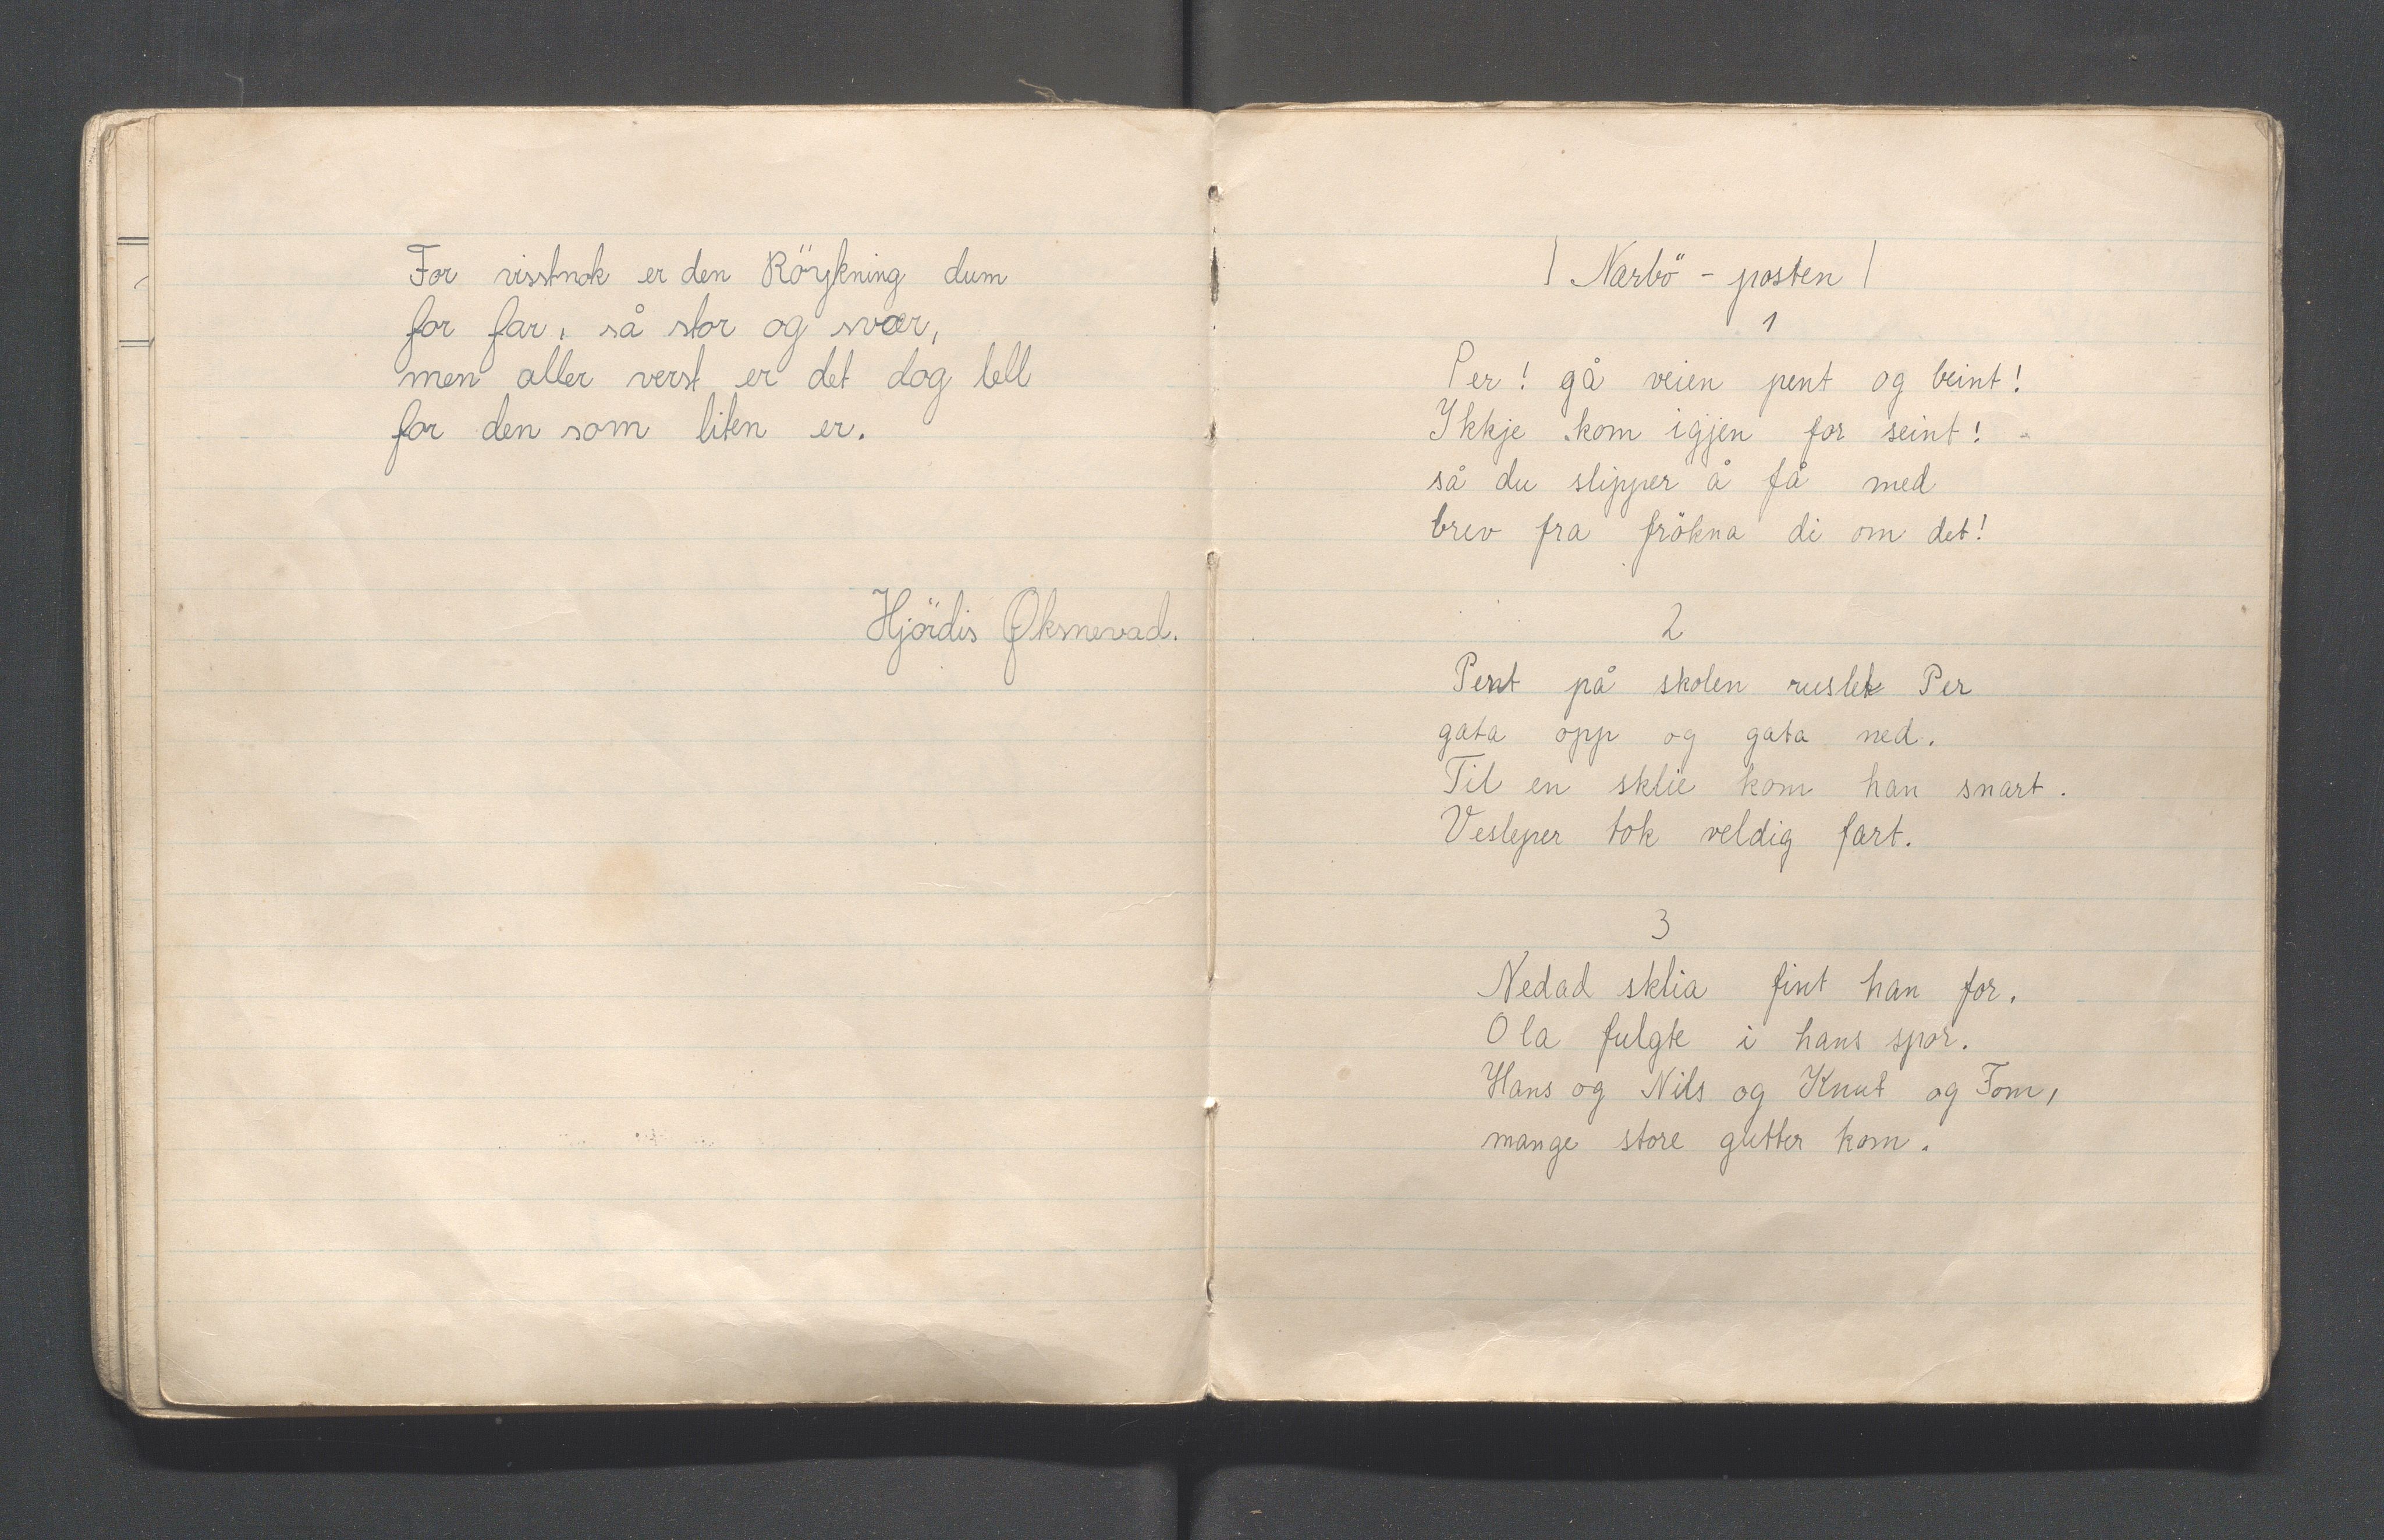 For visstnok er den Röykning dum
for far, så stor og svær,
men aller verst er det dog lell
for den som liten er.
Hjördis Øksnevad.
| Nærbö - posten |
1
Per! gå veien pent og beint!
Ikkje kom igjen for seint!
så du slipper å få med
brev fra frökna di om det!
2
Pent på skolen ruslet Per
gata opp og gata ned.
Til en sklie kom han snart.
Vesleper tok veldig fart.
3
Nedad sklia fint han for.
Ola fulgte i hans spor.
Hans og Nils og Knut og Tom,
mange store gutter kom.